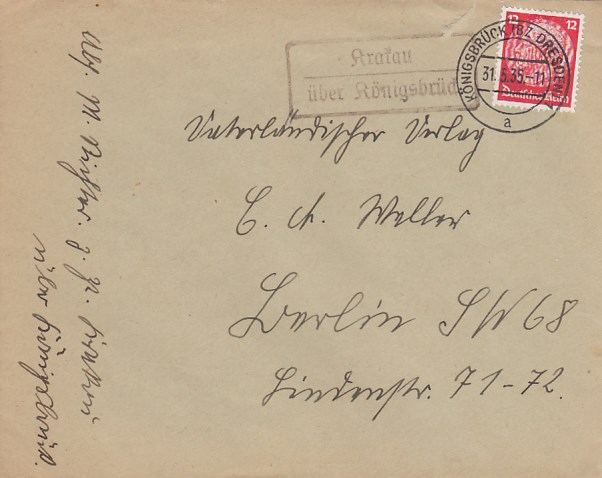 Krakau
über Königsbrück
KÖNIGSBRÜCK (BZ. DRESDEN)
31.5.35.-11
a
12 12
Deutsches Reich
Vaterländischer Verlag
C. A. Weller
Berlin SW 68
Lindenstr. 71-72.
Abs. M. Richter. z. Zt. Krakau
über Königsbrück.